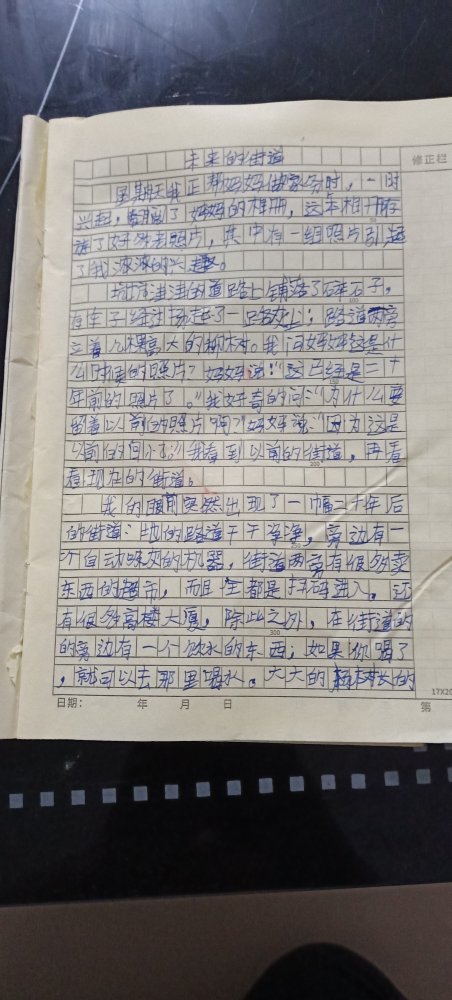 未来的街道
修正栏
星期天我正帮妈妈做家务时，一时
兴起，翻出了妈妈的相册，这本相册存
放了好多老照片，其中有一组照片引起
了我浓浓的兴趣。
坑坑洼洼的道路上铺落了碎石子，
在车子经过扬起了一路灰尘；路道两旁
立着几棵高大的柳树。我问妈妈这是什
么时候的照片？妈妈说：“这已经是二十
100
年前的照片了。”我好奇的问：“为什么要
留着以前的照片啊？”妈妈说：“因为这是
以前的 我看到以前的街道，再看
200
看现在的街道。
我的眼前突然出现了一幅二十年后
的街道：地的路道干干净净，旁边有一
个自动 的机器，街道两旁有很多卖
东西的超市，而且 都是扫码进入。还
有很多高楼大厦，除此之外，在街道的
300
的旁边有一个饮水的东西；如果你喝了
，就可以去那里喝水。大大的杨树长的
17X20
日期： 年 月 日 第